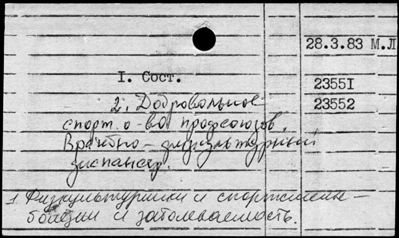 28.3.83 М.Л
1. Сост.
23551
2. Добровольное
23552
спорт. о-во профсоюзов.
Врачебно-физкультурный
диспансер.
1. Физкультурники и спортсмен-
и заболеваемость.